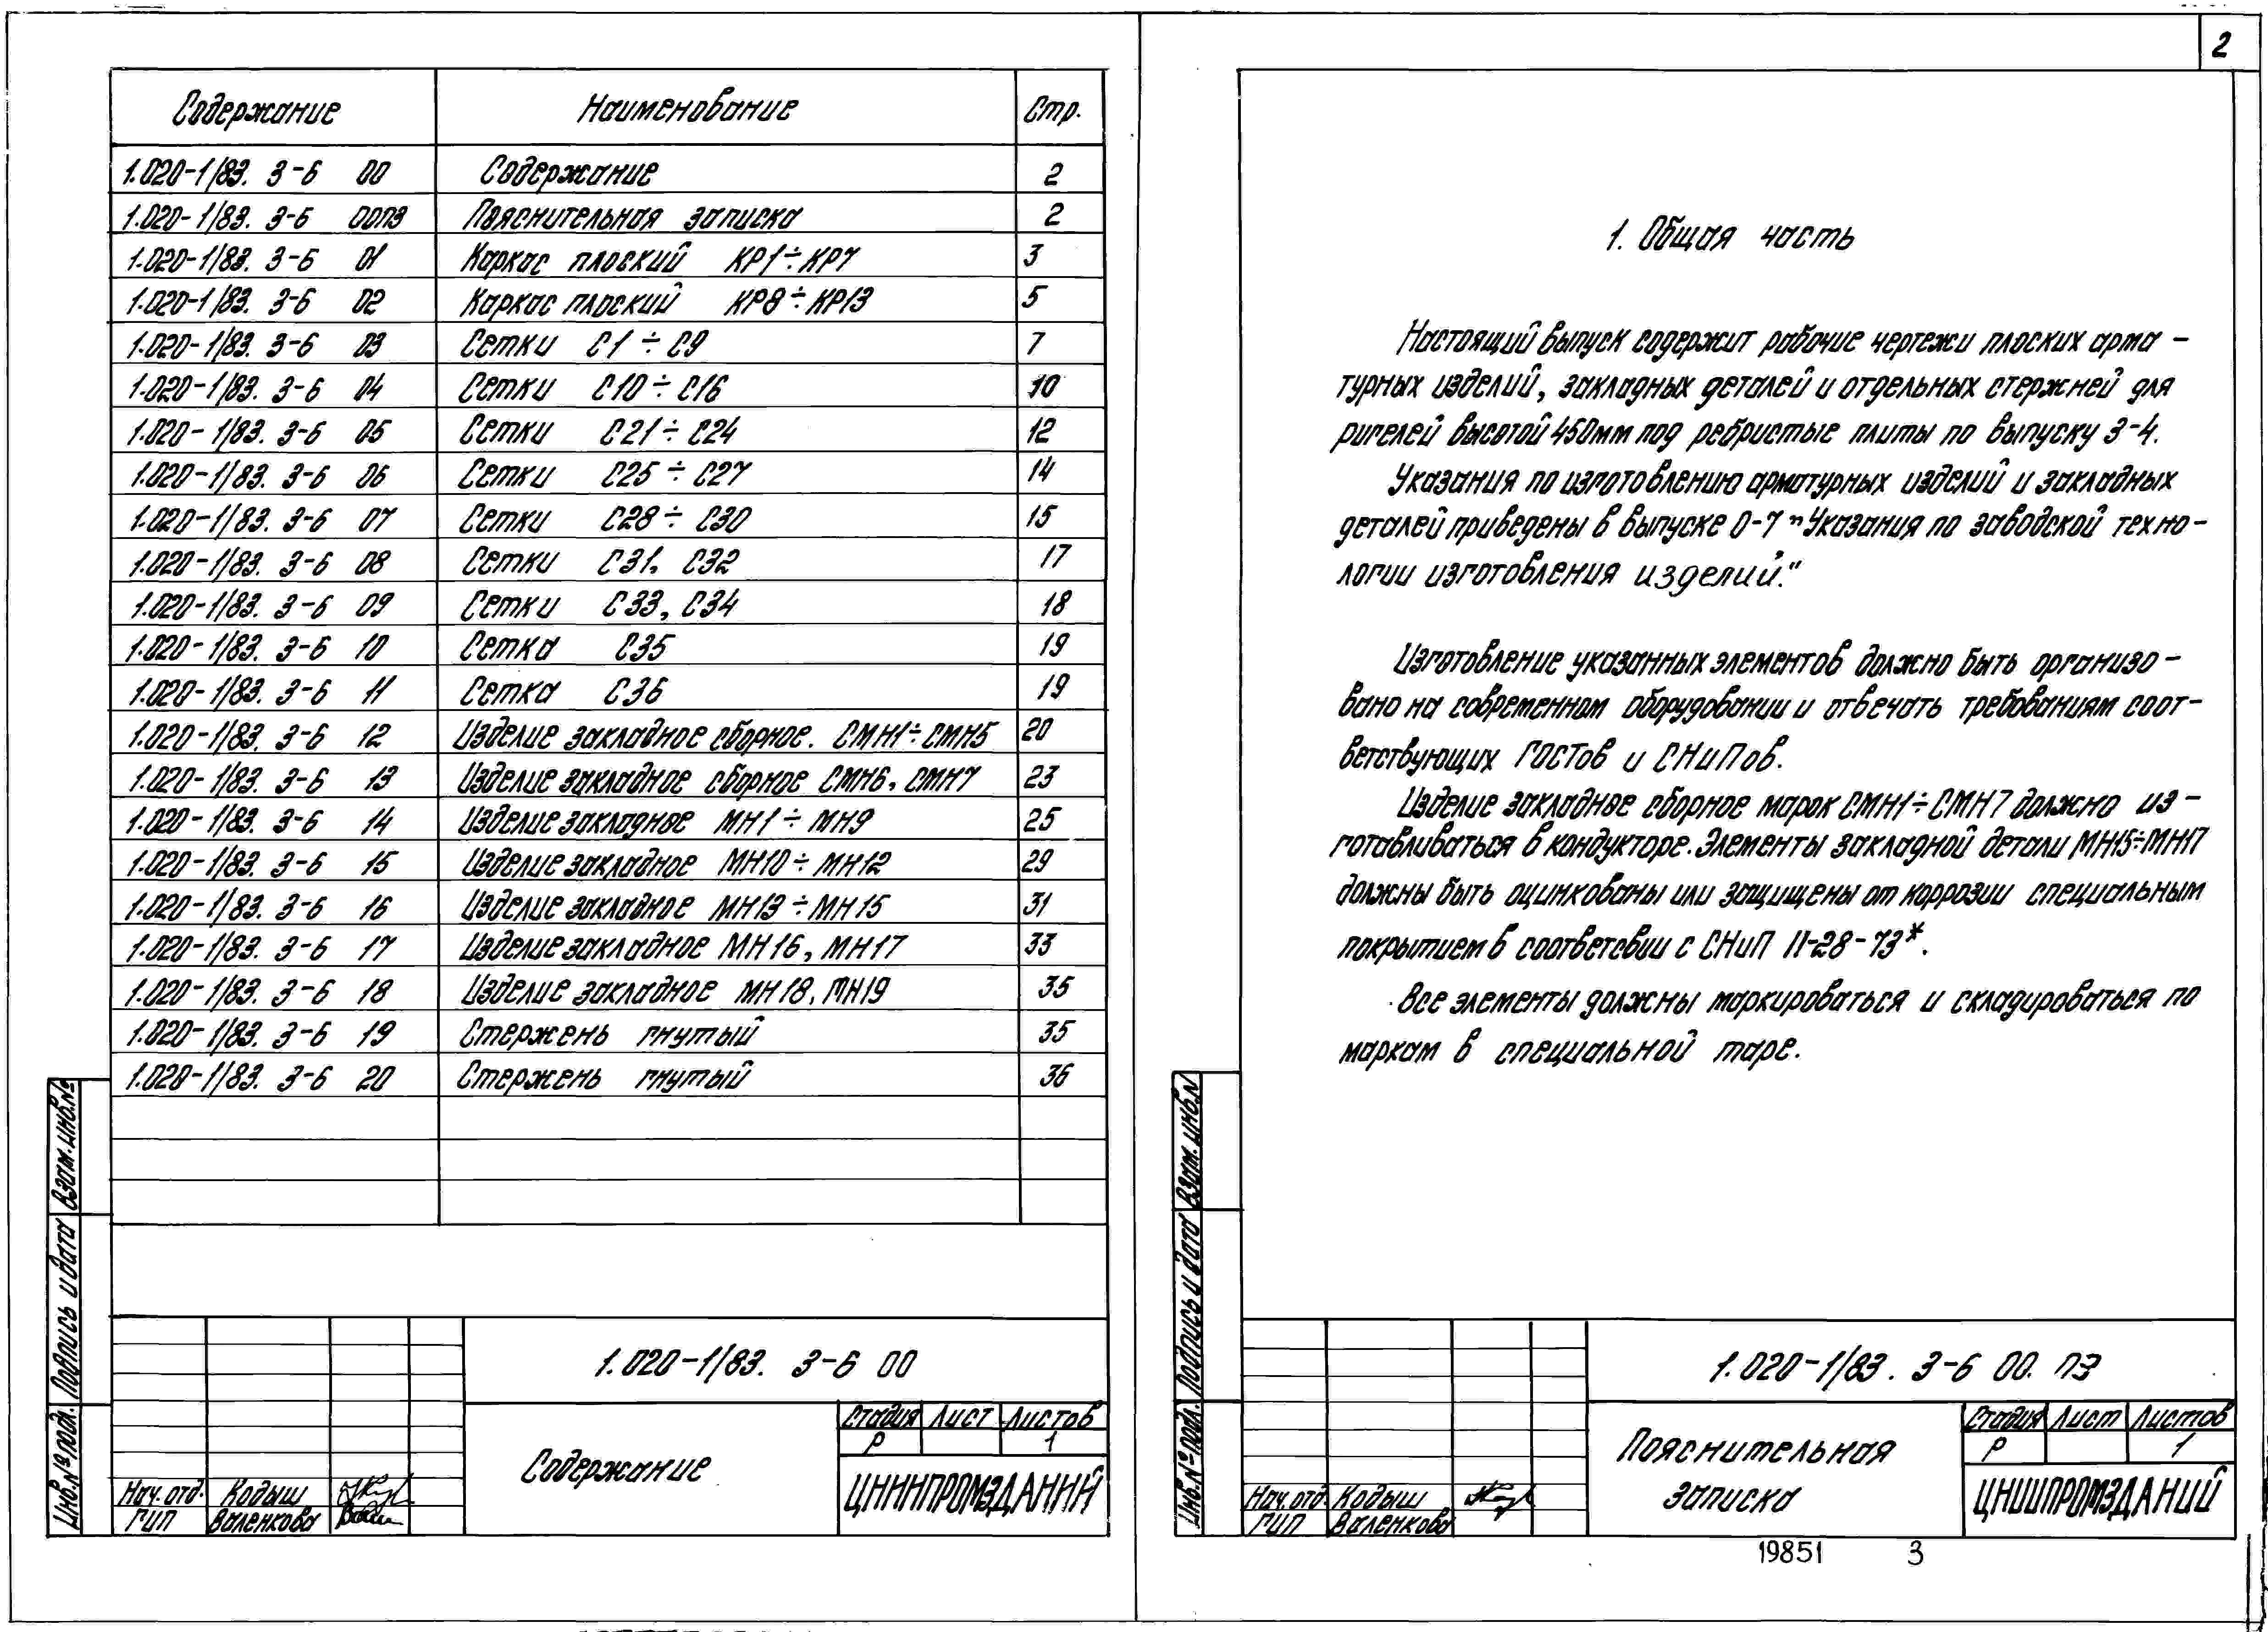 2
Содержание Наименование Стр.
1.020-1/83. 3-6 00 Содержание 2
1.020-1/83. 3-6 00ПЗ Пояснительная записка 2
1.020-1/83. 3-6 01 Каркас плоский КР1÷КР7 3
1.020-1/83. 3-6 02 Каркас плоский КР8÷КР13 5
1.020-1/83. 3-6 03 Сетки С1÷С9 7
1.020-1/83. 3-6 04 Сетки С10÷С16 10
1.020-1/83. 3-6 05 Сетки С21÷С24 12
1.020-1/83. 3-6 06 Сетки С25÷С27 14
1.020-1/83. 3-6 07 Сетки С28÷С30 15
1.020-1/83. 3-6 08 Сетки С31, С32 17
1.020-1/83. 3-6 09 Сетки С33, С34 18
1.020-1/83. 3-6 10 Сетка С35 19
1.020-1/83. 3-6 11 Сетка С36 19
1.020-1/83. 3-6 12 Изделие закладное сборное. СМН1÷СМН5 20
1.020-1/83. 3-6 13 Изделие закладное сборное СМН6, СМН7 23
1.020-1/83. 3-6 14 Изделие закладное МН1÷МН9 25
1.020-1/83. 3-6 15 Изделие закладное МН10÷МН12 29
1.020-1/83. 3-6 16 Изделие закладное МН13÷МН15 31
1.020-1/83. 3-6 17 Изделие закладное МН16, МН17 33
1.020-1/83. 3-6 18 Изделие закладное МН18, МН19 35
1.020-1/83. 3-6 19 Стержень гнутый 35
1.020-1/83. 3-6 20 Стержень гнутый 36
Взам. инв.№
Подпись и дата
Инв.№ подл.
1.020-1/83. 3-6 00
Содержание
Стадия Лист Листов
Р 1
ЦНИИПРОМЗДАНИЙ
Нач. отд. Кодыш
ГИП Валенкова
1. Общая часть
Настоящий выпуск содержит рабочие чертежи плоских арма-
турных изделий, закладных деталей и отдельных стержней для
ригелей высотой 450мм под ребристые плиты по выпуску 3-4.
Указания по изготовлению арматурных изделий и закладных
деталей приведены в выпуске 0-7 „Указания по заводской техно-
логии изготовления изделий."
Изготовление указанных элементов должно быть организо-
вано на современном оборудовании и отвечать требованиям соот-
ветствующих ГОСТов и СНиПов.
Изделие закладное сборное марок СМН1÷СМН7 должно из-
готавливаться в кондукторе. Элементы закладной детали МН15÷МН17
должны быть оцинкованы или защищены от коррозии специальным
покрытием в соответсвии с СНиП II-28-73*.
Все элементы должны маркироваться и складироваться по
маркам в специальной таре.
Взам. инв.N
Подпись и дата
Инв.№ подл.
1.020-1/83. 3-6 00. ПЗ
Пояснительная
записка
Стадия Лист Листов
Р 1
ЦНИИПРОМЗДАНИЙ
Нач. отд. Кодыш
ГИП Валенкова
19851 3